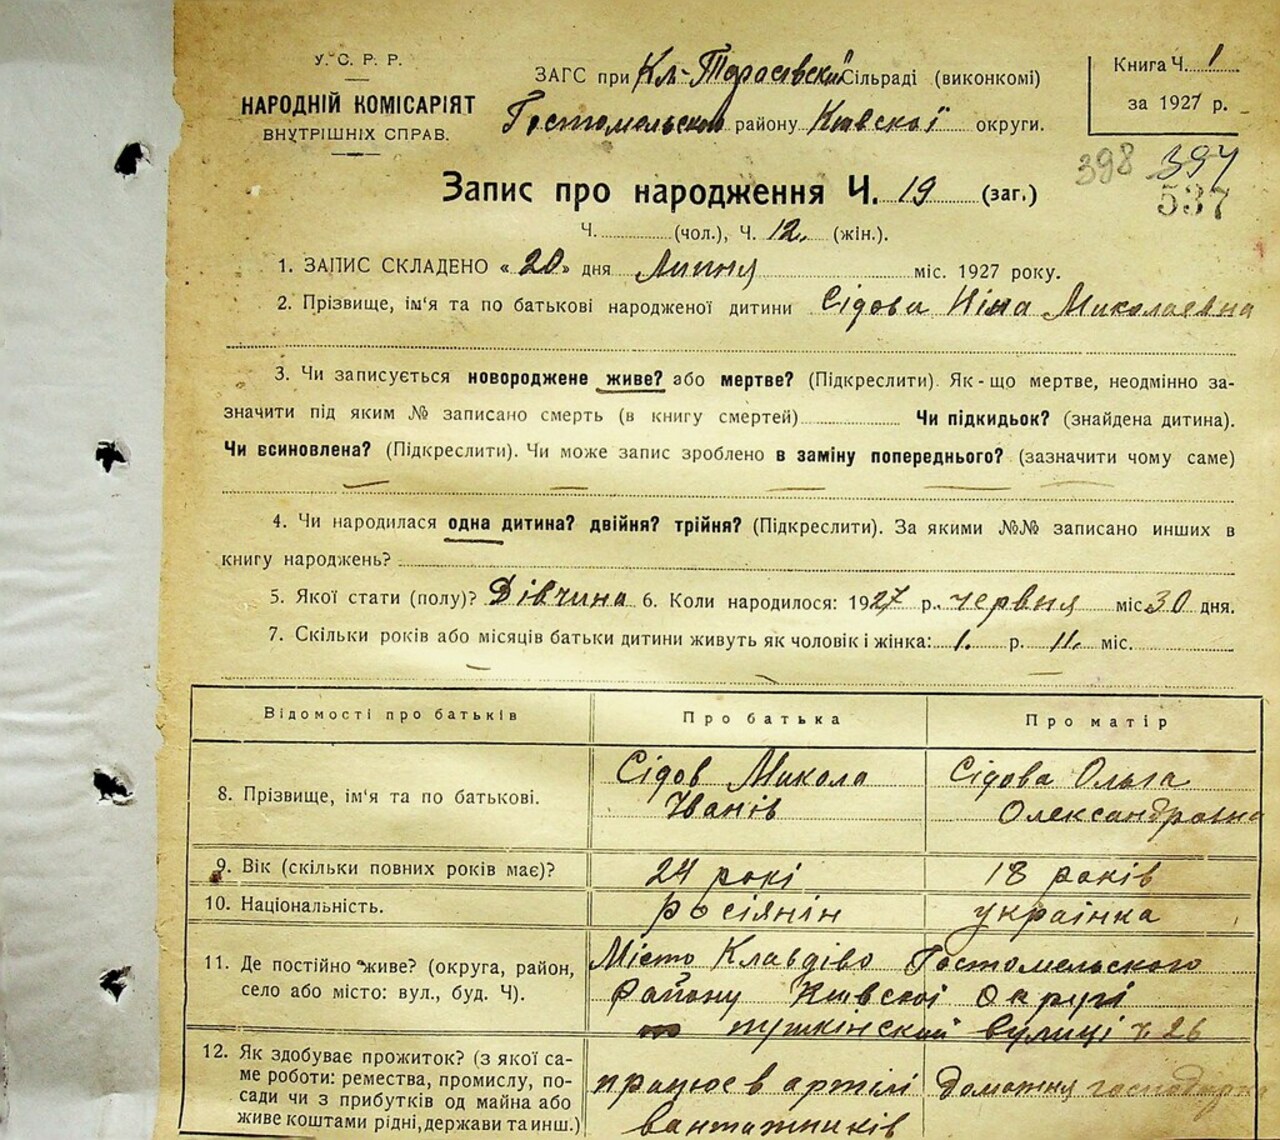 У. С. Р. Р.
НАРОДНІЙ КОМІСАРІЯТ
ВНУТРІШНІХ СПРАВ.
ЗАГС при Кл-Тарасівській Сільраді (виконкомі)
Гостомельського району Київської округи.
Книга Ч. 1
за 1927 р.
398 397
537
Запис про народження Ч. 19 (заг.)
Ч. (чол.), Ч. 12. (жін.).
1. ЗАПИС СКЛАДЕНО « 20 » дня Липня міс. 1927 року.
2. Прізвище, ім'я та по батькові народженої дитини Сідова Ніна Миколаевна
3. Чи записується новороджене живе? або мертве? (Підкреслити). Як-що мертве, неодмінно за-
значити під яким № записано смерть (в книгу смертей) Чи підкидьок? (знайдена дитина).
Чи всиновлена? (Підкреслити). Чи може запис зроблено в заміну попереднього? (зазначити чому саме)
4. Чи народилася одна дитина? двійня? трійня? (Підкреслити). За якими №№ записано инших в
книгу народжень?
5. Якої стати (полу)? Дівчина 6. Коли народилося: 1927 р. червня міс. 30 дня.
7. Скільки років або місяців батьки дитини живуть як чоловік і жінка: 1. р. 11. міс.
Відомості про батьків Про батька Про матір
8. Прізвище, ім'я та по батькові. Сідов Микола Іванів Сідова Ольга Олександровна
9. Вік (скільки повних років має)? 24 рокі 18 років
10. Національність. росіянін українка
11. Де постійно живе? (округа, район,
село або місто: вул., буд. Ч).
Місто Клавдієво Гостомельського
району Київської Округі
пушкінский вулиці ч 26
12. Як здобуває прожиток? (з якої са-
ме роботи: ремества, промислу, по-
сади чи з прибутків од майна або
живе коштами рідні, держави та инш.)
працює в артілі
вантажників
домашня господарка